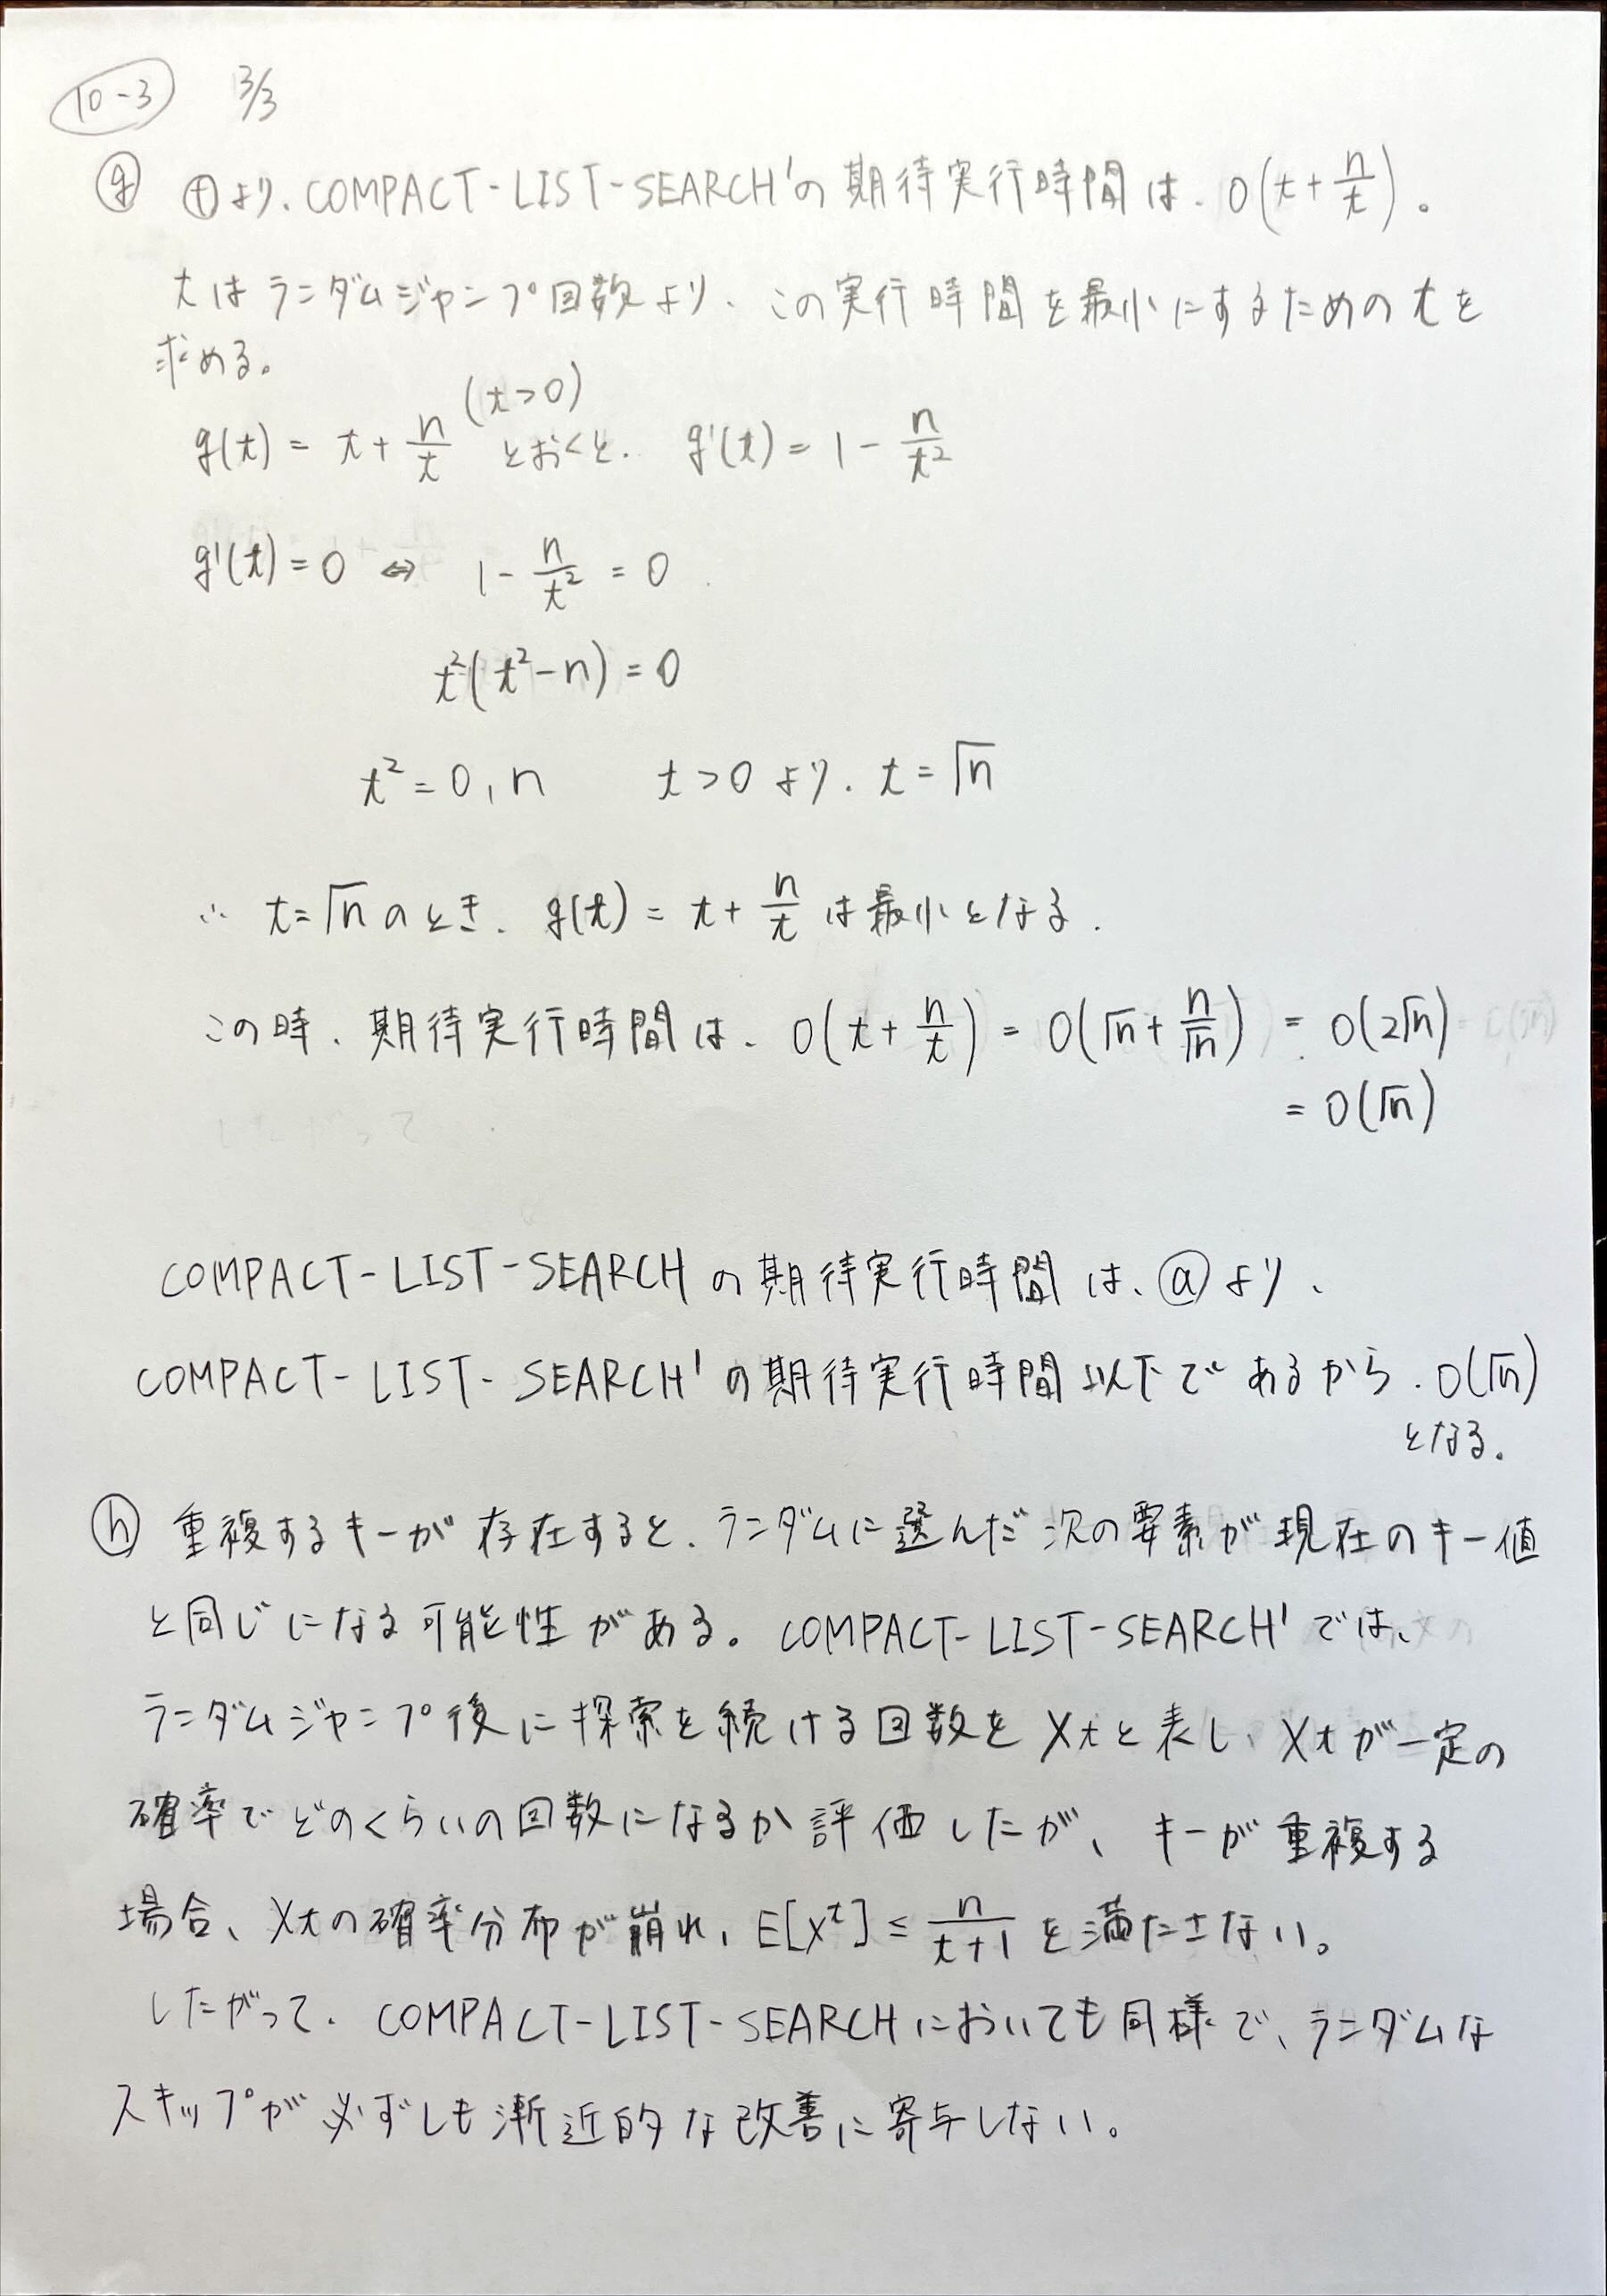 10-3 3/3
ⓖ ⓕより、COMPACT-LIST-SEARCH'の期待実行時間は、O(t + n/t)。
tはランダムジャンプ回数より、この実行時間を最小にするためのtを
求める。
g(t) = t + n/t (t>0) とおくと、 g'(t) = 1 - n/t²
g'(t) = 0 ⇔ 1 - n/t² = 0
t²(t² - n) = 0
t² = 0, n t > 0 より、t = √n
∴ t = √n のとき、g(t) = t + n/t は最小となる.
この時、期待実行時間は、O(t + n/t) = O(√n + n/√n) = O(2√n)
= O(√n)
COMPACT-LIST-SEARCH の期待実行時間は、ⓐより、
COMPACT-LIST-SEARCH' の期待実行時間以下であるから、O(√n)
となる。
ⓗ 重複するキーが存在すると、ランダムに選んだ次の要素が現在のキー値
と同じになる可能性がある。COMPACT-LIST-SEARCH' では、
ランダムジャンプ後に探索を続ける回数をXtと表し、Xtが一定の
確率でどのくらいの回数になるか評価したが、キーが重複する
場合、Xtの確率分布が崩れ、E[Xᵗ] ≤ n/t+1 を満たさない。
したがって、COMPACT-LIST-SEARCHにおいても同様で、ランダムな
スキップが必ずしも漸近的な改善に寄与しない。